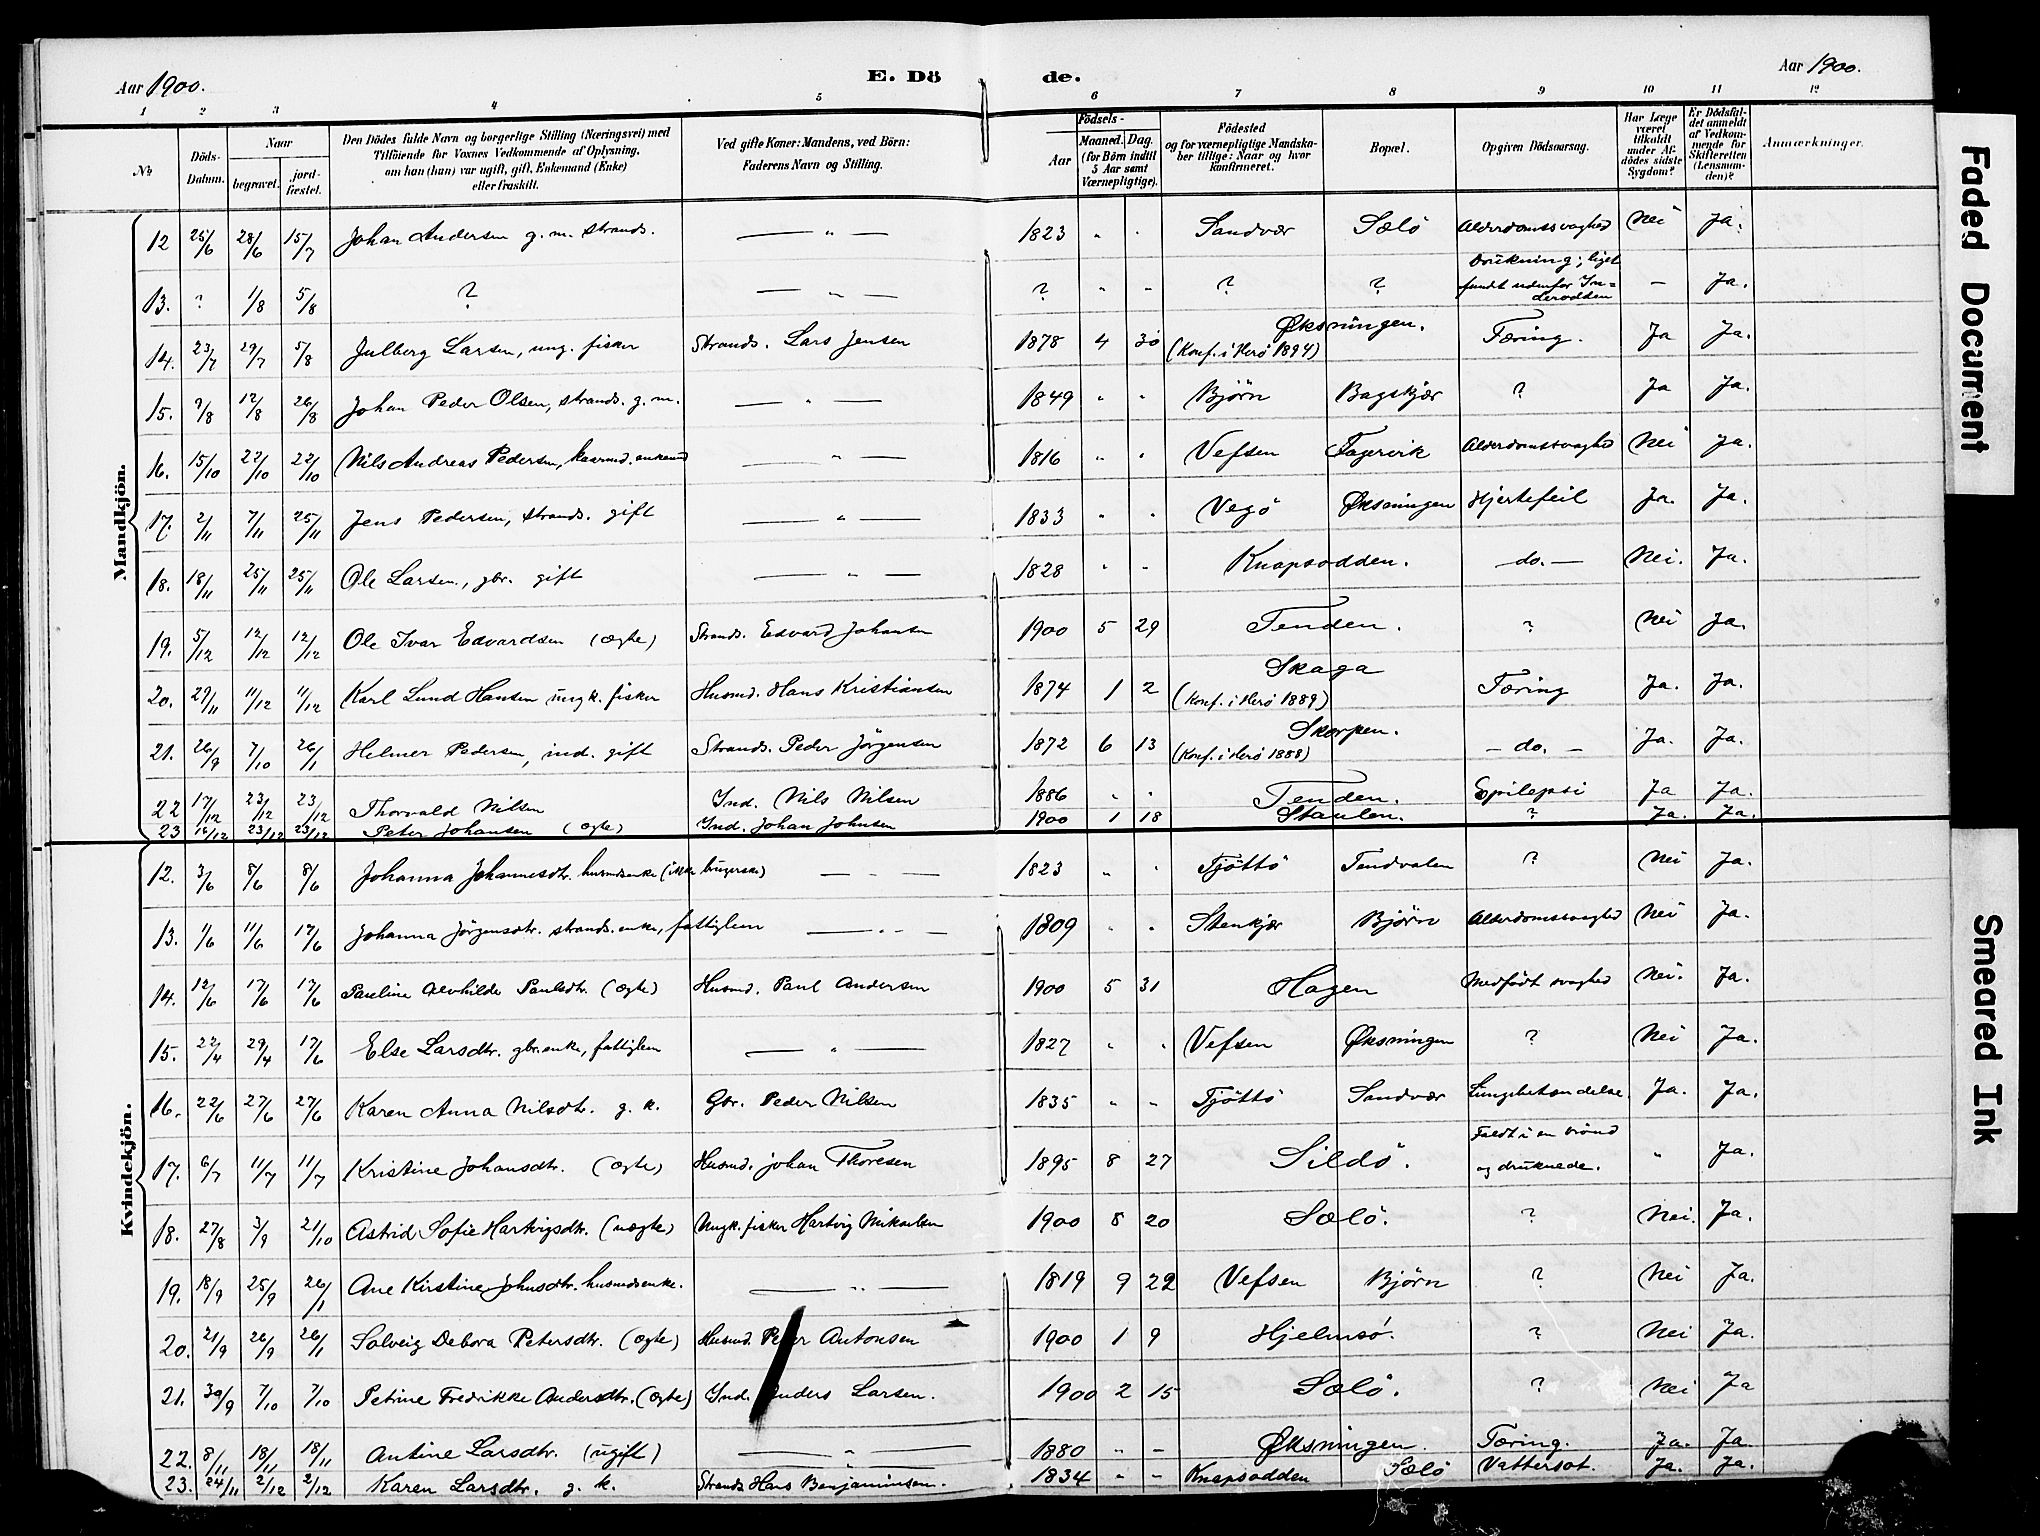 Aar 1900.
E. Dö de.
Aar 1900.
1 2 3 4 5 6 7 8 9 10 11 12
No
Döds-Datum.
Naar
begravet.
jordfæstet.
Den Dödes fulde Navn og borgerlige Stilling (Næringsvei) med
Tilföiende for Voxnes Vedkommende af Oplysning,
om han (hun) var ugift, gift, Enkemand (Enke)
eller fraskilt.
Ved gifte Koner: Mandens, ved Börn:
Faderens Navn og Stilling.
Födsels-
Aar
Maaned. Dag.
(for Börn indtil
5 Aar samt
Værnepligtige).
Födested
og for værnepligtige Mandska-
ber tillige: Naar og hvor
konfirmeret.
Bopæl.
Opgiven Dödsaarsag.
Har Læge
været
tilkaldt
under Af-
dödes sidste
Sygdom?
Er Dödsfal-
det anmeldt
af Vedkom-
mende for
Skifteretten
(Lensman-
den)?
Anmærkninger.
Mandkjön.
12 25/6 28/6 15/7 Johan Andersen g. m. strands. — " — 1823 " " Sandvær Sælö Alderdomssvaghed Nei Ja.
13. ? 1/8 5/8 ? — " — ? " " ? ? Drukning; liget fundt udenfor In=derodden — Ja.
14. 23/7 29/7 5/8 Julberg Larsen, ung. fisker Strands. Lars Jensen 1878 4 30 Øksningen. (Konf. i Herö 1894) Tæring. Ja Ja.
15. 9/8 12/8 26/8 Johan Peder Olsen, strands. g. m. — " — 1849 " " Björn Bagskjær ? Ja Ja.
16. 15/10 22/10 22/10 Nils Andreas Pedersen, kaarmd. enkemd — " — 1816 " " Vefsen Fagervik Alderdomssvaghed Nei Ja.
17. 2/11 7/11 25/11 Jens Pedersen, strands. gift — " — 1833 " " Vegö Øksningen Hjertefeil Ja. Ja.
18. 18/11 25/11 25/11 Ole Larsen, gbr. gift — " — 1828 " " Knapsodden. — do. — Nei. Ja.
19. 5/12 12/12 12/12 Ole Ivar Edvardsen (ægte) Strands. Edvard Johansen 1900 5 29 Tenden. ? Nei Ja.
20. 29/11 11/12 11/12 Karl Lund Hansen ungk. fisker Husmd. Hans Kristiansen 1874 1 2 Skaga (Konf. i Herö 1889) Tæring Ja. Ja.
21. 26/9 7/10 26/1 Helmer Pedersen, ind. gift Strands. Peder Jörgensen 1872 6 13 Skorpen. (Konf. i Herö 1888) — do. — Ja. Ja.
22 17/12 23/12 23/12 Thorvald Nilsen Ind. Nils Nilsen 1886 " " Tenden. Epilepsi Ja Ja.
23 16/12 23/12 23/12 Peter Johansen (ægte) Ind. Johan Johnsen 1900 1 18 Staulen. ? Ja. Ja.
Kvindekjön.
12. 3/6 8/6 8/6 Johanna Johannesdtr. husmdsenke (ikke brugerske) — " — 1823 " " Tjöttö Tendvalen ? Nei Ja.
13. 1/6 11/6 17/6 Johanna Jörgensdtr. strands. enke, fattiglem — " — 1809 " " Stenkjær Björn Alderdomssvaghed Nei Ja.
14. 12/6 17/6 17/6 Pauline Alvhilde Paulsdtr. (ægte) Husmd. Paul Andersen 1900 5 31 Hagen Medfödt svaghed Nei. Ja.
15. 22/4 29/4 17/6 Else Larsdtr. gbr.enke, fattiglem — " — 1827 " " Vefsen Øksningen ? Nei Ja.
16. 22/6 27/6 27/6 Karen Anna Nilsdtr. g. k. Gbr. Peder Nilsen 1835 " " Tjöttö Sandvær Lungebetændelse. Ja. Ja.
17. 6/7 11/7 11/7 Kristine Johansdtr. (ægte) Husmd. Johan Thoresen 1895 8 27 Sildö. Faldt i en brönd og druknede. " Ja.
18. 27/8 3/9 21/10 Astrid Sofie Hartvigsdtr. (uægte) Ungk. fisker Hartvig Mikaelsen 1900 8 20 Sælö. ? Nei. Ja.
19. 18/9 25/9 26/1 Ane Kirstine Johnsdtr. husmdsenke. — " — 1819 9 22 Vefsen Björn ? Nei Ja.
20. 21/9 26/9 26/1 Solveig Debora Petersdtr. (ægte) Husmd. Peter Antonsen 1900 1 9 Hjelmsö. ? Nei Ja.
21. 30/9 7/10 7/10 Petrine Fredrikke Andersdtr. (ægte) Ind. Anders Larsen. 1900 2 15 Sælö. ? Nei Ja
22. 8/11 18/11 18/11 Antine Larsdtr. (ugift) — " — 1880 " " Øksningen. Tæring. Ja. Ja.
23. 24/11 2/12 2/12 Karen Larsdtr. g. k. Strands Hans Benjaminsen. 1834 " " Knapsodden Sælö Vattersot. Ja. Ja.
Faded Document
Smeared Ink